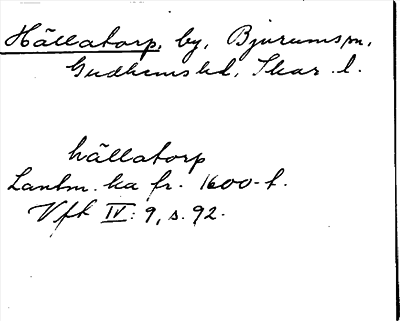 Hällatorp, by, Bjurums sn,
Gudhems hd, Skar. l.
hällatorp
Lantm. ka fr. 1600-t.
Vft IV: 9, s. 92.